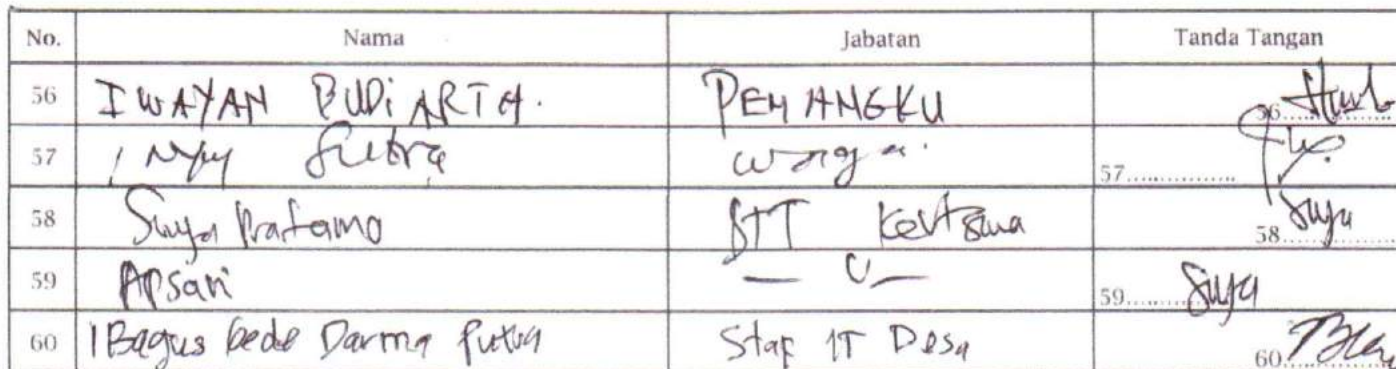 No. Nama Jabatan Tanda Tangan
56 I WAYAN BUDI ARTA. PEMANGKU 56..........
57 I Nym Sutra warga. 57..........
58 Surya Pratama STT 58.......... Surya
59 Apsari — " — 59.......... Surya
60 I Bagus Gede Darma Putra Staf IT Desa 60..........